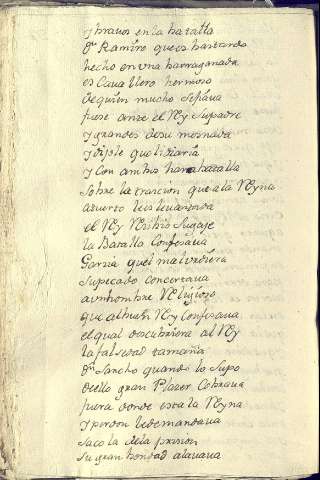 y brauos en la batalla
Dn Ramiro que es bastardo
hecho en vna barraganada
es Cauallero hermoso
de quien mucho se fiaua
fuese ante el Rey su padre
y grandes de su mesnada
y dijole que lidiaria
y Con ambos hara batalla
sobre la traicion que a la Reyna
a tuerto leis leuantada
el Rey Rsibio su gaje
la Batalla Confesaua
Garcia quel mal vrdiera
su pecado Concertaua
a vn hombre Religioso
que al buen Rey Confesaua
el qual descubriera al Rey
la falsedad tamaña
Dn Sancho quando lo supo
dello gran Plazer Cobraua
fuera donde esta la Reyna
y perdon le demandaua
saco la de la prision
su gran bondad alauaua